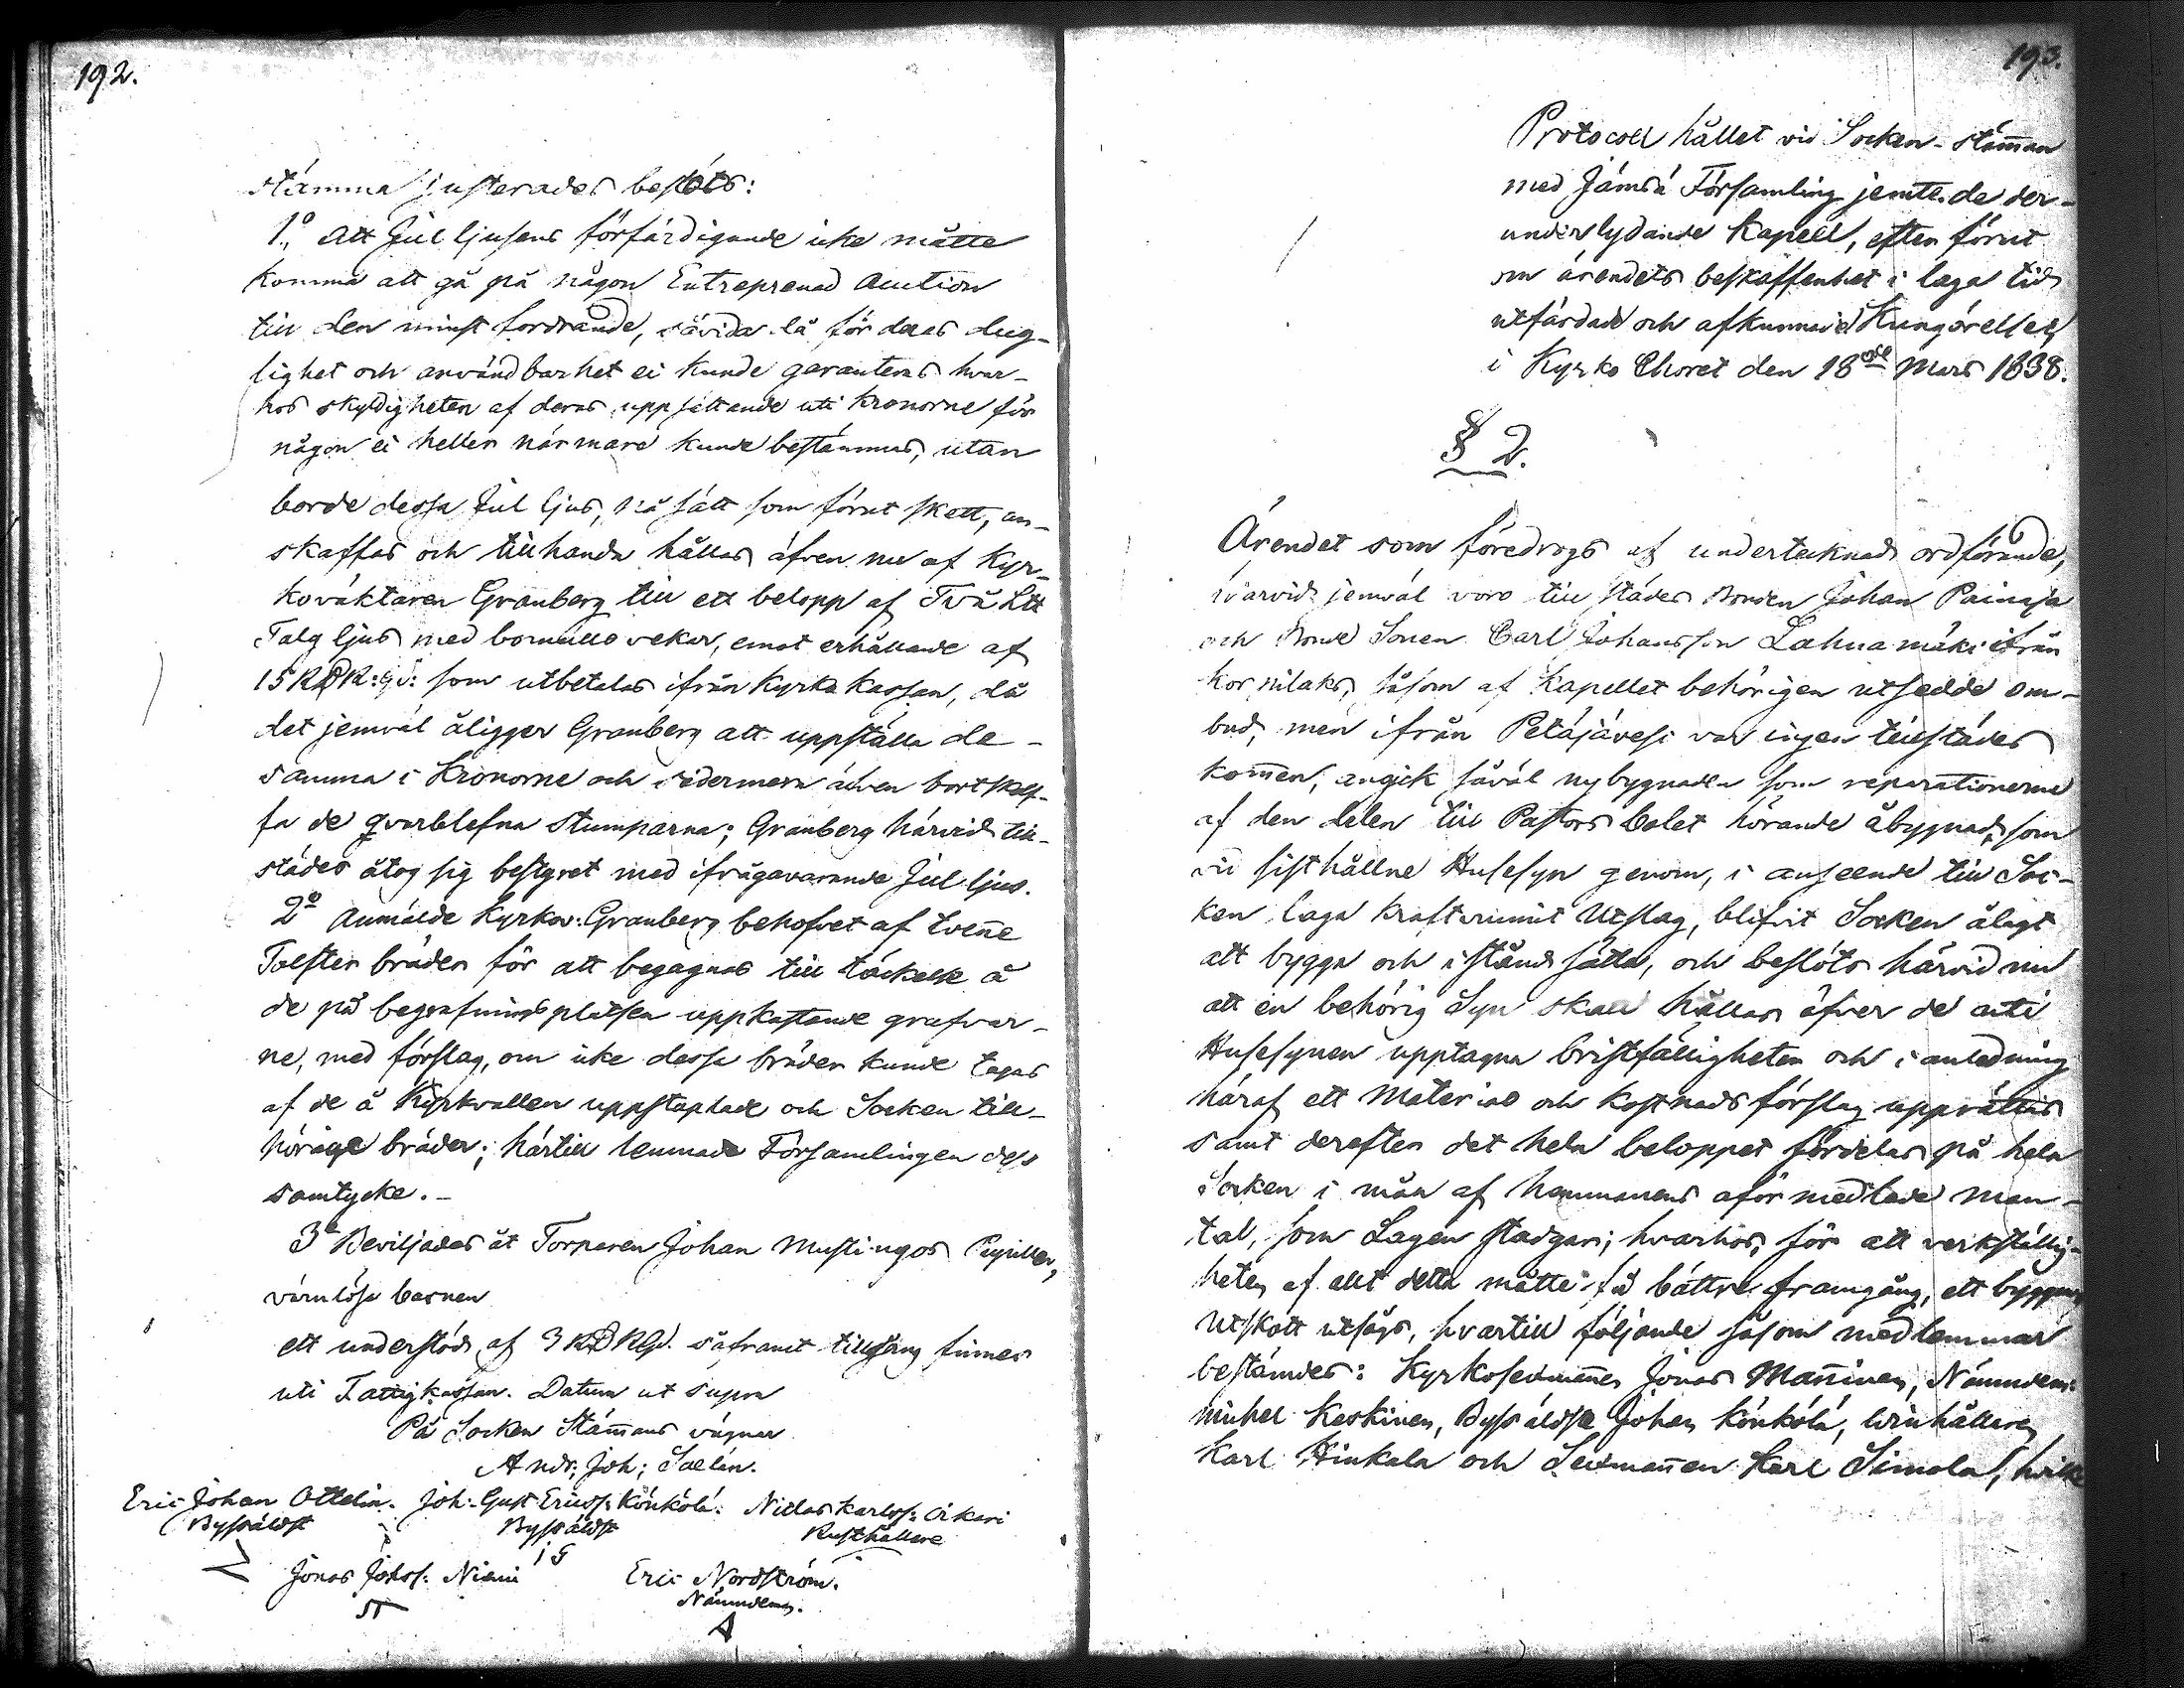 192.
stämma justerades beslöts:
1o, Att Jul ljusens förfärdigande icke måtte
komma att gå på någon Entreprenad Auction
till den minst fordrande, såvida då för deras dug-
lighet och användbarhet ei kunde garanteras hvar-
hos skyldigheten af deras uppsättande uti kronorne för
någon ei heller närmare kunde bestämmas, utan
borde dessa Jul ljus, på sätt som förut skett, an-
skaffas och tillhanda hållas äfven nu af Kyr-
koväktaren Granberg till ett belopp af Två Ltt
Talg ljus med bomulls vekar, emot erhållande af
15 R:gs: som utbetalas ifrån Kyrko Kassan, då
det jemväl åligger Granberg att uppställa de-
samma i Kronorne och sedermera äfven bortskaf-
fa de qvarblefna stumparna; Granberg härvid till-
städes åtog sig bestyret med ifrågavarande Jul ljus.
2o Anmälde Kyrkov: Granberg behofvet af tvenne
Tolfter bräder för att begagnas till täckelse å
de på begrafningsplatsen uppkastade grafvar-
ne, med förslag, om icke dessa bräder kunde tagas
af de å Kyrkvallen uppstaplade och Socken till-
hörige bräder; härtill lemnade Församlingen dess
samtycke.-
3o Beviljades åt Torparen Johan Mustingos Pupiller,
värnlösa barnen
ett understöd af 3 R Rgs. såframt tillgång finnes
uti Fattigkassan. Datum ut supra
På Socken Stämans vägnar
Andr; Joh; Saelan.
Eric Johan Ottelin. Joh: Gust Ericss: Könkölä: Niclas Karlss: Oikari
Byssäldst Byssäldst Rusthållare
Jonas Johss: Niemi Eric Nordström.
Nämndem.
193.
Protocoll hållet vid Socken-stämman
med Jämsä Församling jemte de der-
underlydande Kapell, efter förut
om ärendets beskaffenhet i laga tid
utfärdade och afkunnad Kungörelse,
i Kyrko Choret den 18de Mars 1838.
§ 2.
Ärendet som föredrogs af undertecknad ordförande,
hvarvid jemväl voro till städes Bonden Johan Painaja
och Bonde Sonen Carl Johansson Lahnamäki ifrån
Korpilaks, såsom af Kapellet behörigen utsedde om-
bud, men ifrån Petäjävesi var ingen tillstädes
kommen, angick såväl nybygnaden som reparationerne
af den delen till Pastors bolet hörande åbygnad, som
vid sist hållne Husesyn genom, i anseende till Soc-
ken laga kraftvunnit Utslag, blifvit Socken ålagt
att bygga och i stånd sätta, och beslöts härvid nu
att en behörig Syn skall hållas öfver de uti
Husesynen upptagna bristfälligheter och i anledning
häraf ett Material och Kostnads förslag upprättas
samt derefter det hela beloppet fördelas på hela
Socken i mån af hemmanens oförmedlade man-
tal, som Lagen stadgar; hvarhos, för att verkställig-
heten af allt detta måtte få bättre framgång, ett byggnads
Utskott utsågs, hvartill följande såsom medlemmar
bestämdes: Kyrkosexmannen Jonas Manninen, Nämndem:
Michel Keskinen, Byssäldste Johan Könkölä,
Karl Hinkala och Sexmannen Karl Simola,